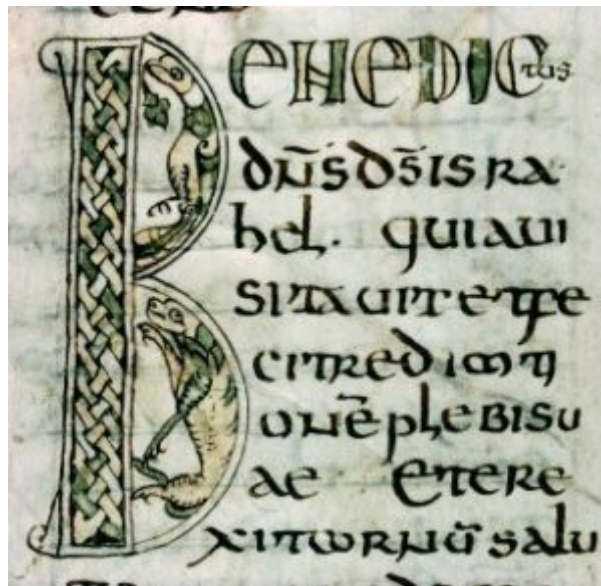 BENEDICTUS
dn̄s ds̄ isra
hel. quiaui
sitauit etfe
cit redemti
onē plebi su
ae Et ere
xit cornū salu